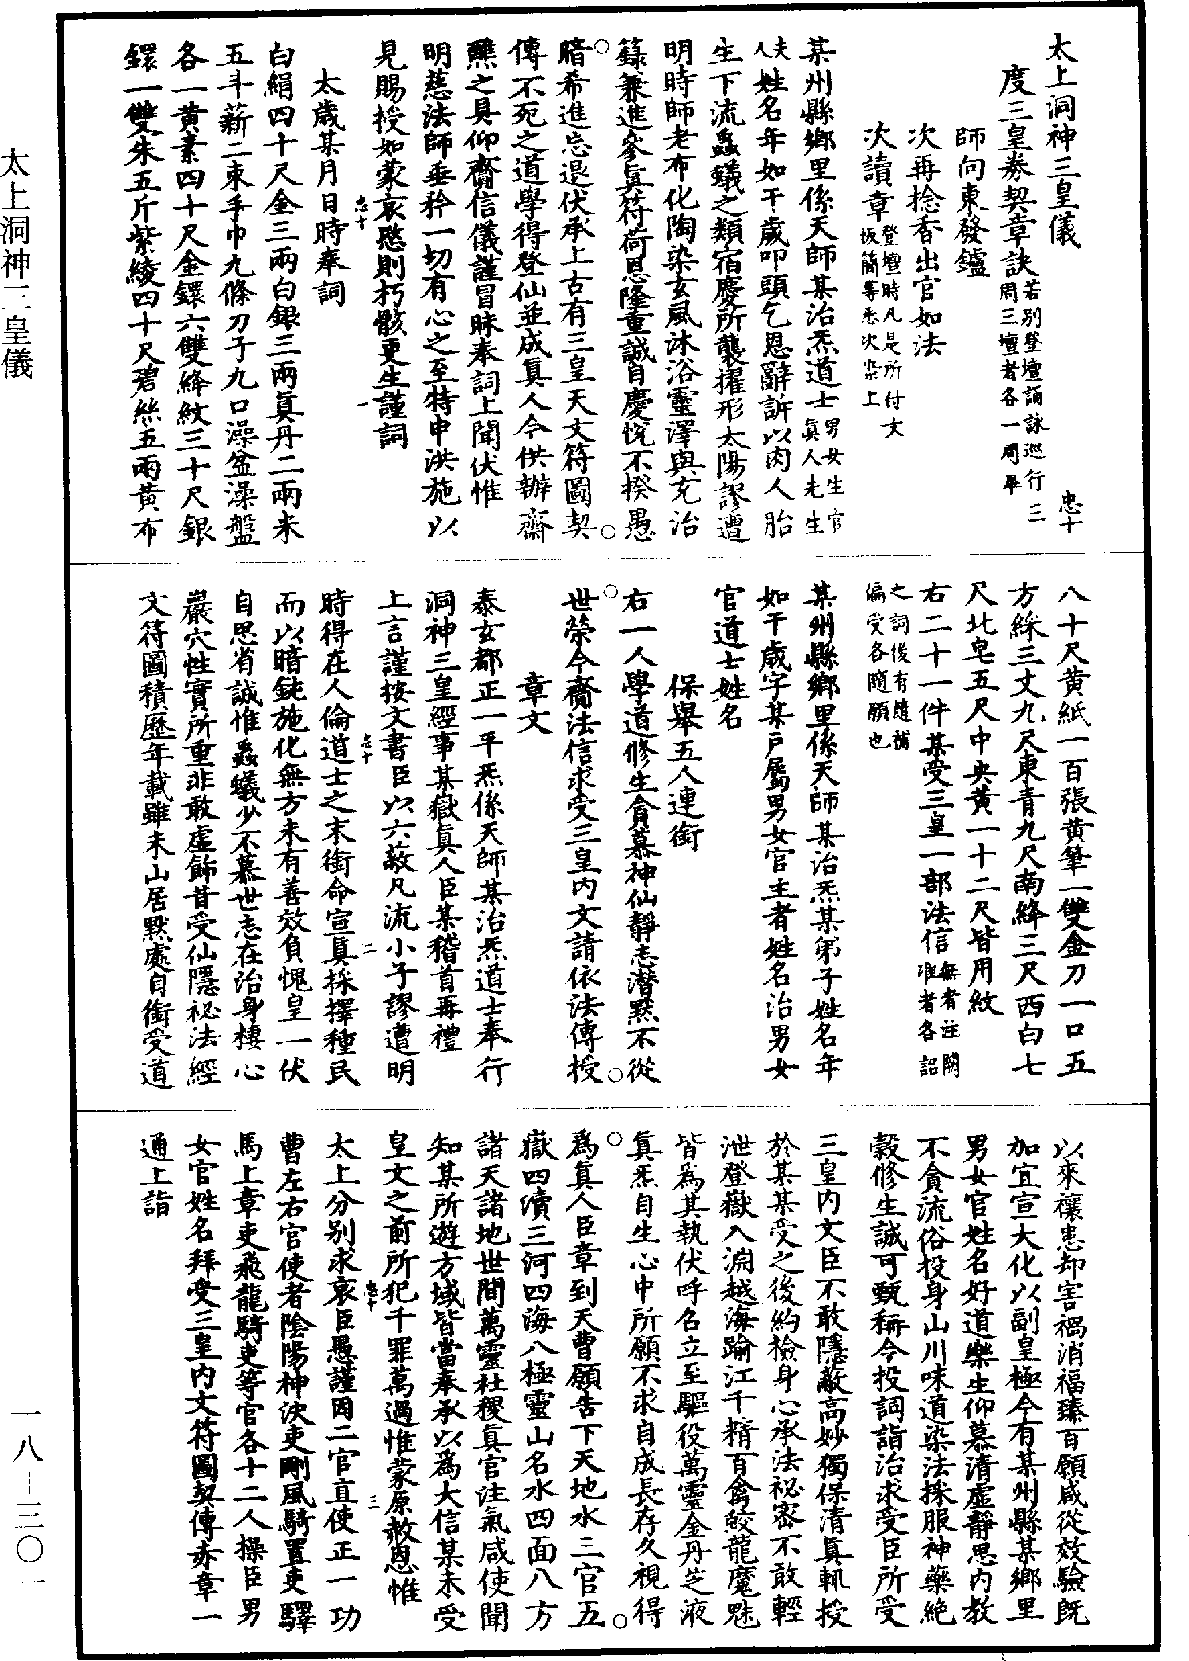 太上洞神三皇儀
太上洞神三皇儀 忠十
度三皇券契章訣若別登壇誦詠巡行三周三壇者各一周畢
師向東發鑪
次再捻香出官如法
次讀章登壇時凡是所付文板簡等悉次案上
某州縣鄉里係天師某治炁道士男女生官真人先生夫人姓名年如干歲叩頭乞恩辭訴以肉人胎
生下流蟲蟻之類宿慶所襲擢形太陽謬遭
明時師老布化陶染玄風沐浴靈澤與充治
籙兼進參真符荷恩隆重誠自慶悅不揆愚
暗希進忘退伏承上古有三皇天文符圖契
傳不死之道學得登仙並成真人今供辦齋
醮之具仰齎信儀謹冒昧奉詞上聞伏惟
明慈法師垂矜一切有心之至特申洪施以
見賜授如蒙哀愍則朽骸更生謹詞
忠十 一
太歲某月日時奉詞
白絹四十尺金三兩白銀三兩真丹二兩米
五斗薪二束手巾九條刀子九口澡盆澡盤
各一黃素四十尺金鐶六雙絳紋三十尺銀
鐶一雙朱五斤紫綾四十尺碧絲五兩黃布
八十尺黃紙一百張黃筆一雙金刀一口五
方綵三丈九尺東青九尺南絳三尺西白七
尺北皂五尺中央黃一十二尺皆用紋
右二十一件某受三皇一部法信無者注闕准者各詔
之詞後有隨補偏受各隨願也
某州縣鄉里係天師某治炁某弟子姓名年
如干歲字某戶屬男女官主者姓名治男女
官道士姓名
保舉五人連銜
右一人學道修生貪慕神仙靜志潛默不從
世榮今齎法信求受三皇內文請依法傳授
章文
泰玄都正一平炁係天師某治炁道士奉行
洞神三皇經事某嶽真人臣某稽首再禮
上言謹按文書臣以六蔽凡流小子謬遭明
忠十 二
時得在人倫道士之末銜命宣真採擇種民
而以暗鈍施化無方未有善效負愧皇一伏
自思省誠惟蟲蟻少不慕世志在治身棲心
巖穴性實所重非敢虛飾昔受仙隱祕法經
文符圖積歷年載雖未山居默處自銜受道
以來禳患却害禍消福臻百願咸從效驗既
加宜宣大化以副皇極今有某州縣某鄉里
男女官姓名好道樂生仰慕清虛靜思內教
不貪流俗投身山川味道染法採服神藥絶
穀修生誠可甄稱今投詞詣治求受臣所受
三皇內文臣不敢隱蔽高妙獨保清真輒授
於某某受之後約檢身心承法祕密不敢輕
泄登嶽入淵越海踰江千精百禽蛟龍魔魅
皆為其執伏呼名立至驅役萬靈金丹芝液
真炁自生心中所願不求自成長存久視得
為真人臣章到天曹願告下天地水三官五
嶽四瀆三河四海八極靈山名水四面八方
諸天諸地世間萬靈社稷真官注氣咸使聞
知某所遊方域皆當奉承以為大信某未受
皇文之前所犯千罪萬過惟蒙原赦恩惟
忠十 三
太上分別求哀臣愚謹因二官直使正一功
曹左右官使者陰陽神決吏剛風騎置吏驛
馬上章吏飛龍騎吏等官各十二人操臣男
女官姓名拜受三皇內文符圖契傳赤章一
通上詣
一八-三〇一